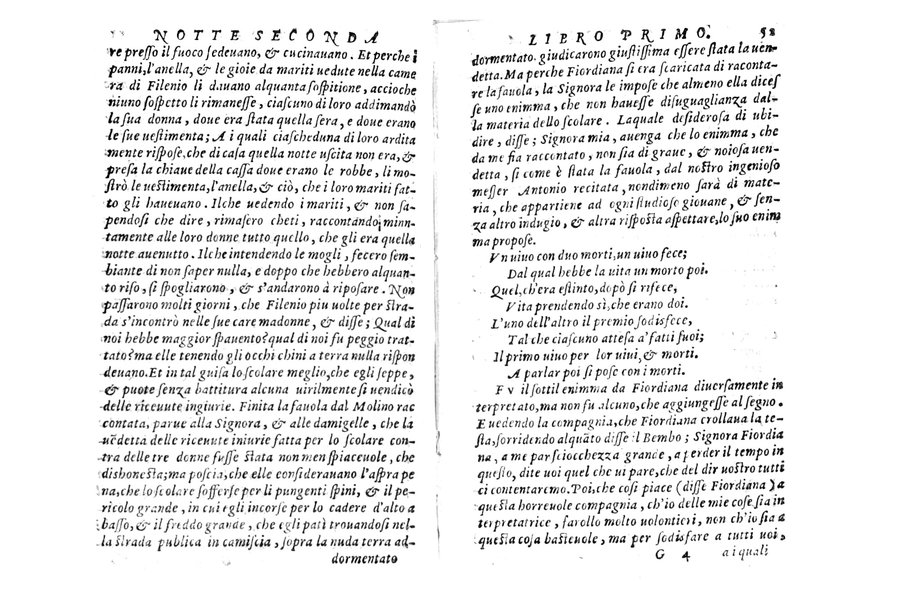 NOTTE SECONDA
re presso il fuoco sedeuano, & cucinauano. Et perche i
panni, l'anella, & le gioie da mariti uedute nella came
ra di Filenio li dauano alquanta sospitione, accioche
niuno sospetto li rimanesse, ciascuno di loro addimandò
la sua donna, doue era stata quella sera, e doue erano
le sue uestimenta; A i quali ciascheduna di loro ardita
mente rispose, che di casa quella notte uscita non era, &
presa la chiaue della cassa doue erano le robbe, li mo-
strò le uestimenta, l'anella, & ciò, che i loro mariti fat-
to gli haueuano. Ilche uedendo i mariti, & non sa-
pendosi che dire, rimasero cheti, raccontando minu-
tamente alle loro donne tutto quello, che gli era quella
notte auenutto. Il che intendendo le mogli, fecero sem-
biante di non saper nulla, e doppo che hebbero alquan-
to riso, si spogliarono, & s'andarono à riposare. Non
passarono molti giorni, che Filenio piu uolte per stra-
da s'incontrò nelle sue care madonne, & disse; Qual di
noi hebbe maggior spauento? qual di noi fu peggio trat-
tato? ma elle tenendo gli occhi chini a terra nulla rispon
deuano. Et in tal guisa lo scolare meglio, che egli seppe,
& puote senza battitura alcuna uirilmente si uendicò
delle riceuute ingiurie. Finita la fauola dal Molino rac
contata, parue alla Signora, & alle damigelle, che la
uēdetta delle riceuute iniurie fatta per lo scolare con-
tra delle tre donne fusse stata non men spiaceuole, che
dishonesta; ma poscia, che elle considerauano l'aspra pe
na, che lo scolare sofferse per li pungenti spini, & il pe-
ricolo grande, in cui egli incorse per lo cadere d'alto a
basso, & il freddo grande, che egli patì trouandosi nel-
la strada publica in camiscia, sopra la nuda terra ad-
dormentato
LIBRO PRIMO. 52
dormentato. giudicarono giustissima essere stata la uen-
detta. Ma perche Fiordiana si era scaricata di raconta-
re la fauola, la Signora le impose che almeno ella dices
se uno enimma, che non hauesse disuguaglianza dal-
la materia dello scolare. Laquale desiderosa di ubi-
dire, disse; Signora mia, auenga che lo enimma, che
da me fia raccontato, non sia di graue, & noiosa uen-
detta, si come è stata la fauola, dal nostro ingenioso
messer Antonio recitata, nondimeno sarà di mate-
ria, che appartiene ad ogni studioso giouane, & sen-
za altro indugio, & altra risposta aspettare, lo suo enim
ma propose.
Vn uiuo con duo morti, un uiuo fece;
Dal qual hebbe la uita un morto poi.
Quel, ch'era estinto, dopò si refece,
Vita prendendo sì, che erano doi.
L'uno dell'altro il premio sodisfece,
Tal che ciascuno attesa a' fatti suoi;
Il primo uiuo per lor uiui, & morti.
A parlar poi si pose con i morti.
FV il sottil enimma da Fiordiana diuersamente in
terpretato, ma non fu alcuno, che aggiungesse al segno.
E uedendo la compagnia, che Fiordiana crollaua la te-
sta, sorridendo alquāto disse il Bembo; Signora Fiordia
na, a me par sciocchezza grande, a perder il tempo in
questo, dite uoi quel che ui pare, che del dir uostro tutti
ci contentaremo. Poi, che cosi piace (disse Fiordiana) a
questa horreuole compagnia, ch'io delle mie cose sia in
terpretatrice, farollo molto uolontieri, non ch'io sia a
questa cosa basteuole, ma per sodisfare a tutti uoi,
G 4 a i quali